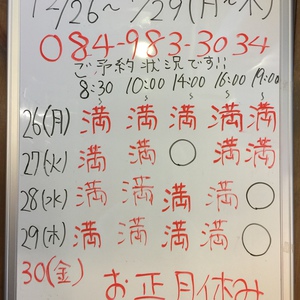 12/26～1/29(月～木)
084-983-3034
ご予約状況です!!
8:30 10:00 14:00 16:00 19:00
～ ～ ～ ～ ～
26(月) 満 満 満 満 満
27(火) 満 満 ○ 満 満
28(水) 満 満 満 満 ○
29(木) 満 満 満 満 ○
30(金)
お正月休み